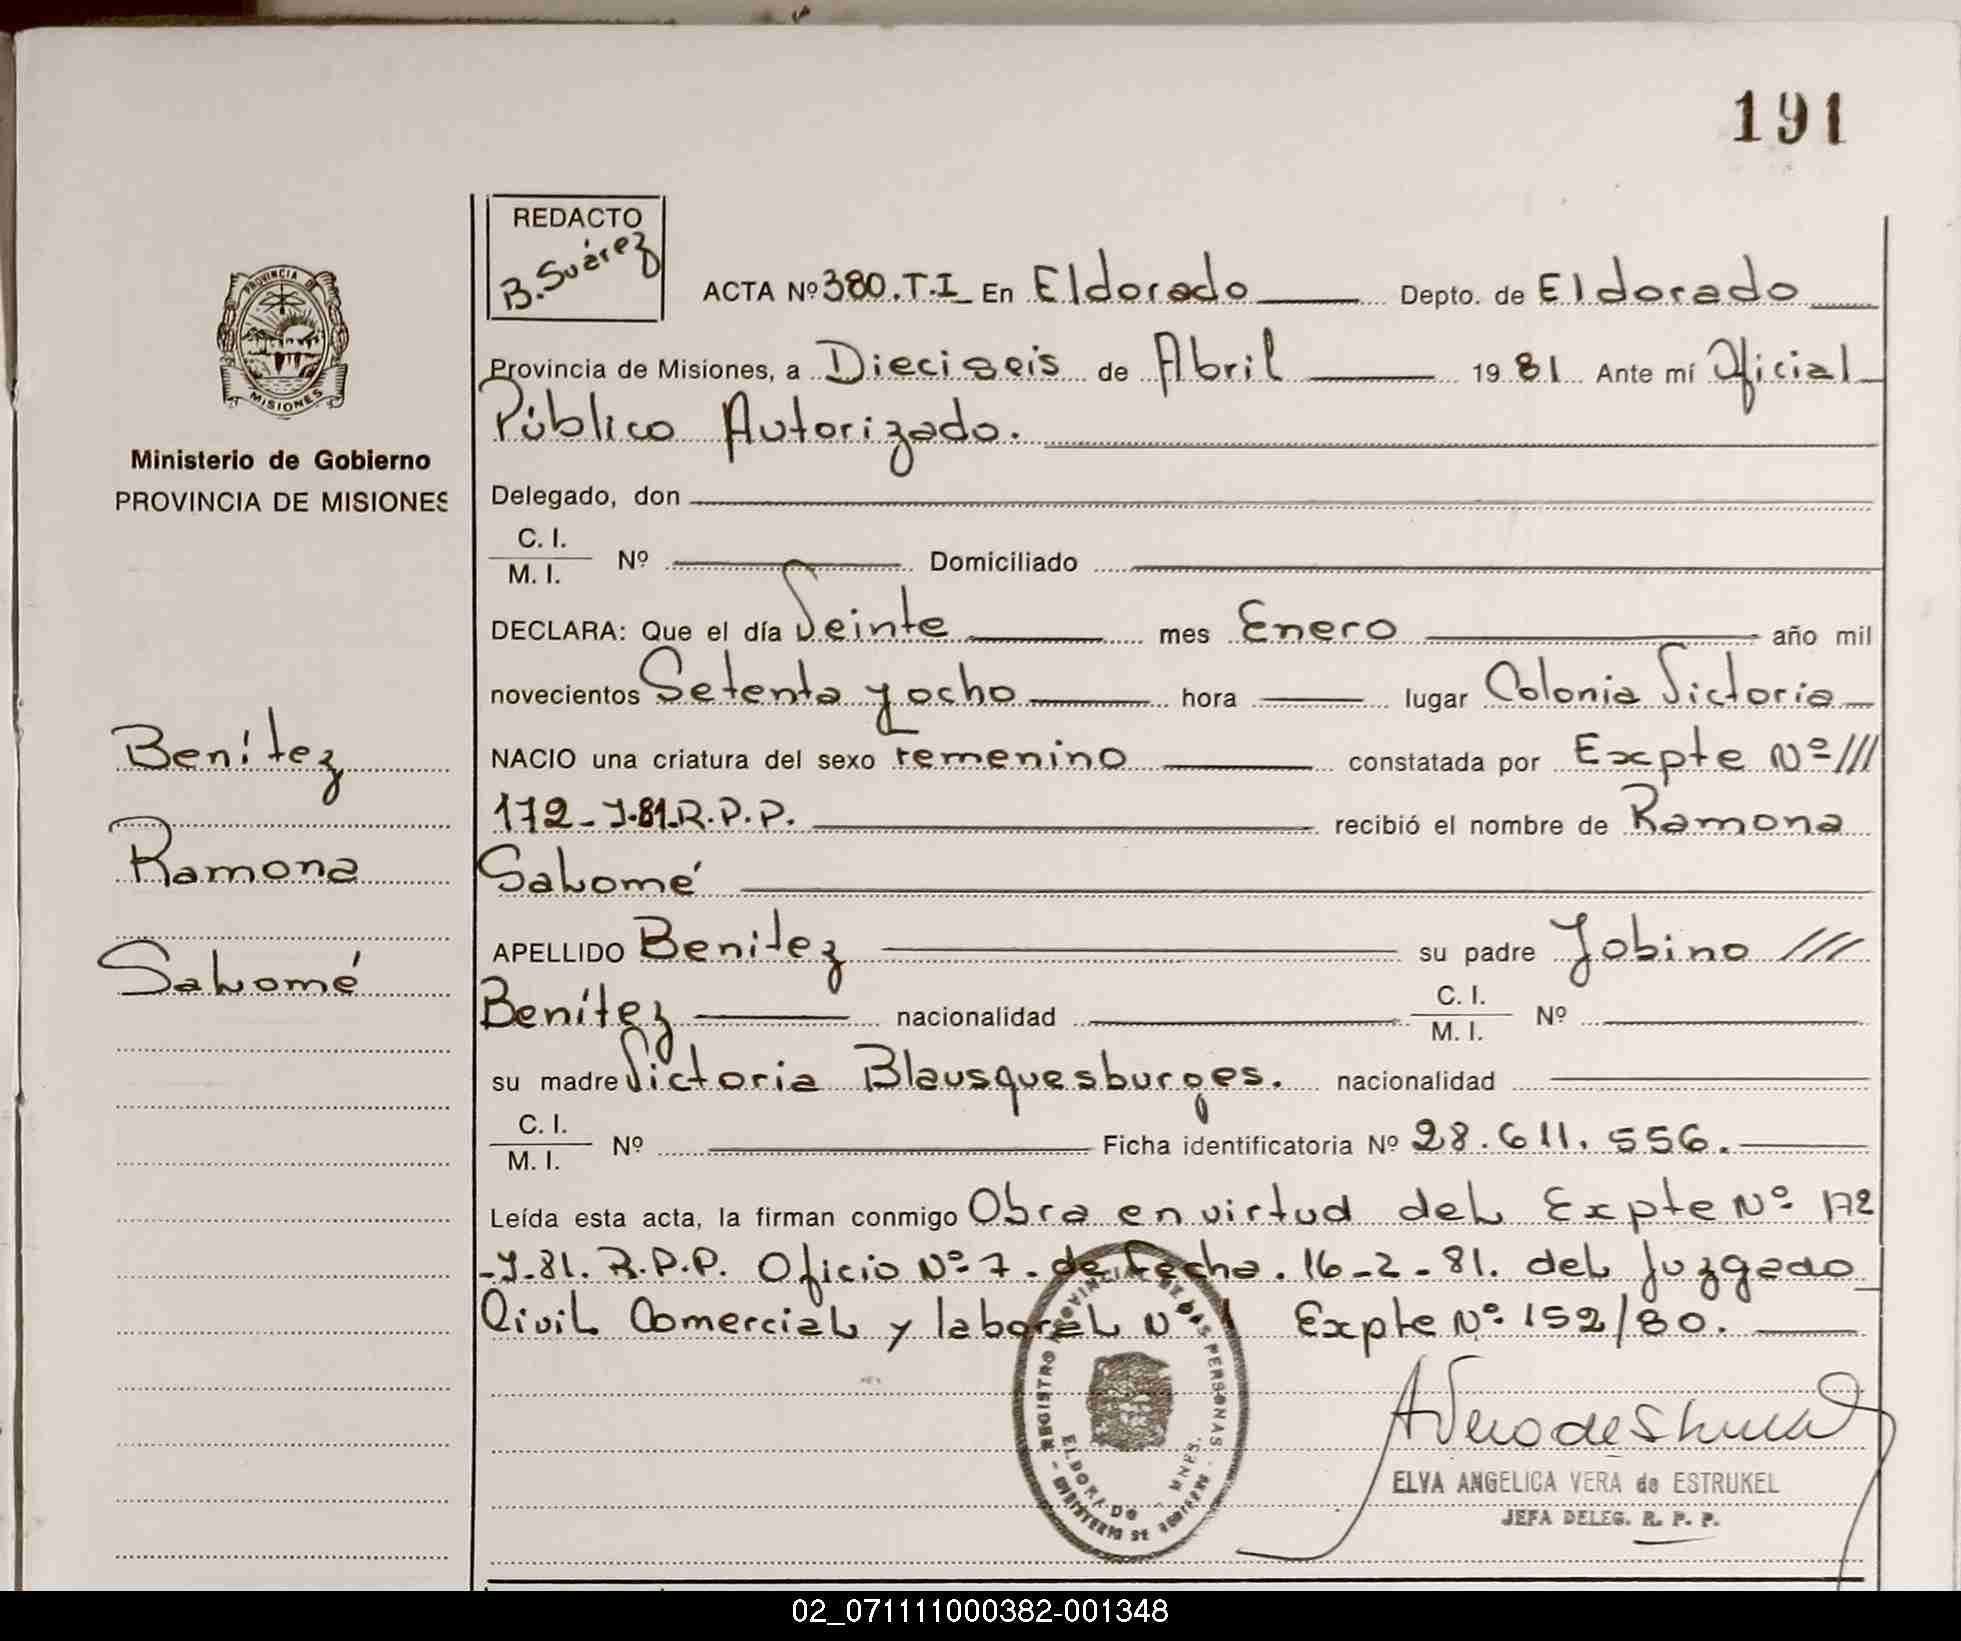 191
REDACTO
B. Suárez
PROVINCIA DE
MISIONES
Ministerio de Gobierno
PROVINCIA DE MISIONES
Benítez
Ramona
Salomé
ACTA Nº 380.T.I En Eldorado Depto. de Eldorado
Provincia de Misiones, a Dieciseis de Abril 1981 Ante mí Oficial
Público Autorizado.
Delegado, don
C. I.
M. I. Nº Domiciliado
DECLARA: Que el día Veinte mes Enero año mil
novecientos Setenta y ocho hora lugar Colonia Victoria
NACIO una criatura del sexo Femenino constatada por Expte Nº ///
172-J-81.R.P.P. recibió el nombre de Ramona
Salomé
APELLIDO Benitez su padre Jobino ///
Benítez nacionalidad C. I.
M. I. Nº
su madre Victoria Blausquesburges. nacionalidad
C. I.
M. I. Nº Ficha identificatoria Nº 28.611.556.
Leída esta acta, la firman conmigo Obra en virtud del Expte Nº 172
-J-81. R.P.P. Oficio Nº 7. de Fecha. 16-2-81. del Juzgado
Civil Comercial y laboral Nº 1 Expte Nº 152/80.
REGISTRO PROVINCIAL DE LAS PERSONAS
ELDORADO - MNES.
MINISTERIO DE GOBIERNO
ELVA ANGELICA VERA de ESTRUKEL
JEFA DELEG. R. P. P.
02_071111000382-001348